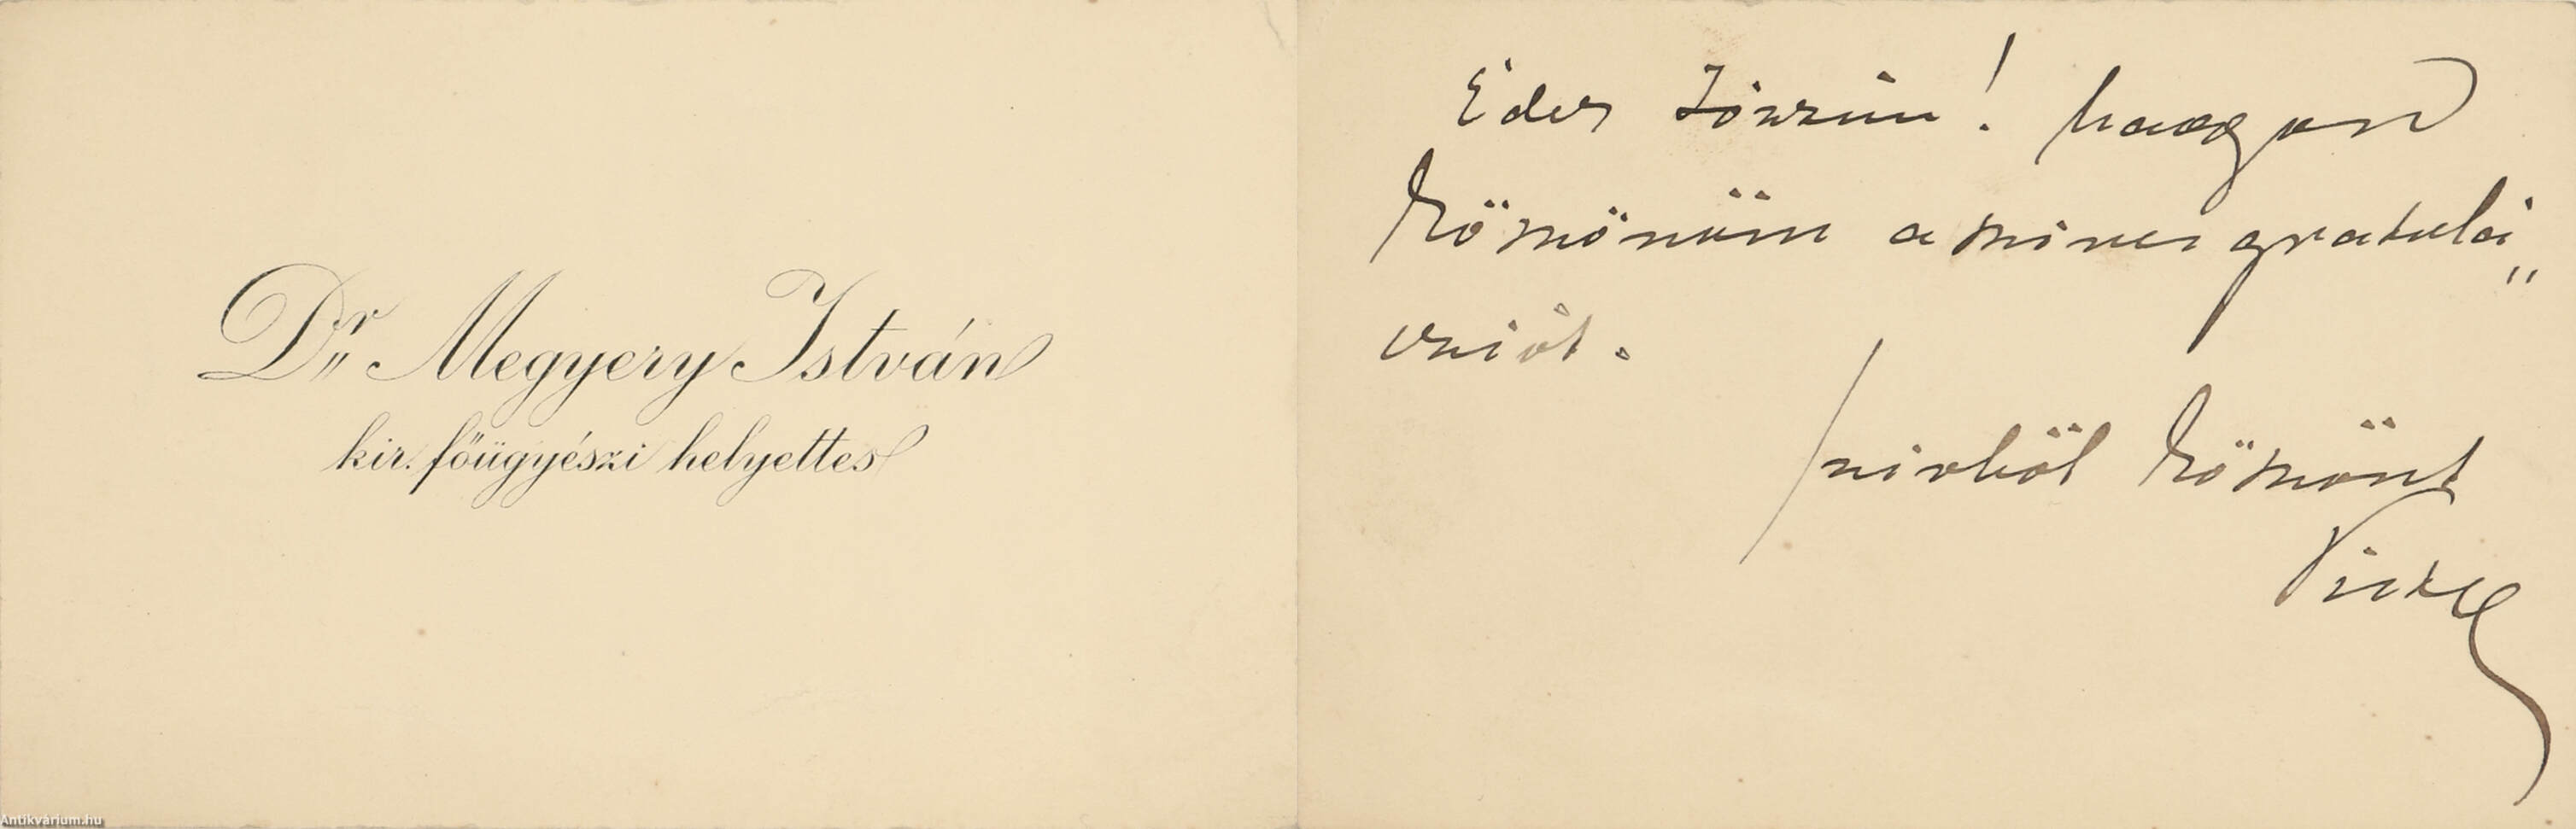 Dr Megyery István
kir. főügyészi helyettes
Édes Józsim! Nagyon
köszönöm a szíves gratulá„
cziót.
szívből köszönt
Pista
Antikvárium.hu